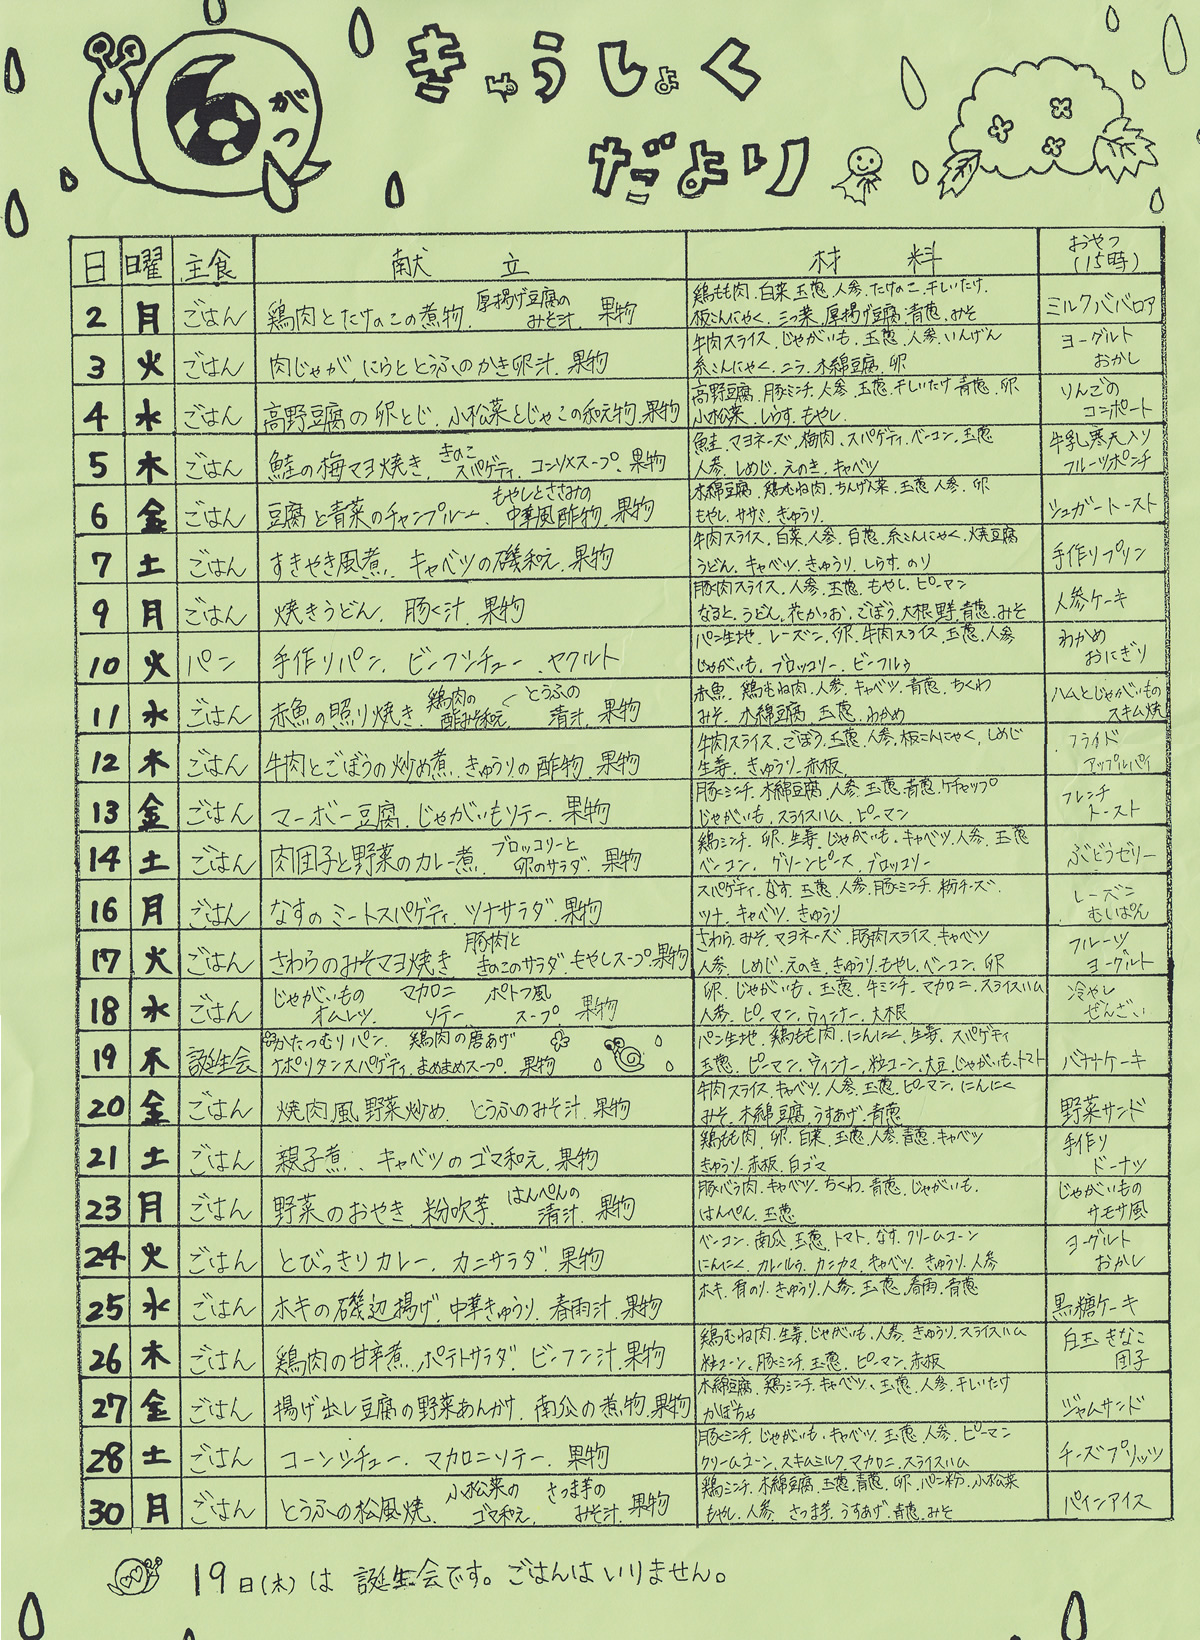 6がつ
きゅうしょく
だより
日 曜 主食 献立 材料 おやつ(15時)
2 月 ごはん 鶏肉とたけのこの煮物、厚揚げ豆腐のみそ汁、果物 鶏もも肉、白菜、玉葱、人参、たけのこ、干しいたけ、 ミルクババロア
板こんにゃく、三つ葉、厚揚げ豆腐、青葱、みそ
3 火 ごはん 肉じゃが、にらととうふのかき卵汁、果物 牛肉スライス、じゃがいも、玉葱、人参、いんげん ヨーグルト おかし
糸こんにゃく、ニラ、木綿豆腐、卵
4 水 ごはん 高野豆腐の卵とじ、小松菜とじゃこの和え物、果物 高野豆腐、豚ミンチ、人参、玉葱、干しいたけ、青葱、卵 りんごのコンポート
小松菜、しらす、もやし、
5 木 ごはん 鮭の梅マヨ焼き、きのこスパゲティ、コンソメスープ、果物 鮭、マヨネーズ、梅肉、スパゲティ、ベーコン、玉葱 牛乳寒天入りフルーツポンチ
人参、しめじ、えのき、キャベツ
6 金 ごはん 豆腐と青菜のチャンプルー、もやしとささみの中華風酢物、果物 木綿豆腐、鶏むね肉、ちんげん菜、玉葱、人参、卵 シュガートースト
もやし、ササミ、きゅうり、
7 土 ごはん すきやき風煮、キャベツの磯和え、果物 牛肉スライス、白菜、人参、白葱、糸こんにゃく、焼豆腐 手作りプリン
うどん、キャベツ、きゅうり、しらす、のり
9 月 ごはん 焼きうどん、豚く汁、果物 豚肉スライス、人参、玉葱、もやし、ピーマン 人参ケーキ
なると、うどん、花かつお、ごぼう、大根、里芋、青葱、みそ
10 火 パン 手作りパン、ビーフシチュー、ヤクルト パン生地、レーズン、卵、牛肉スライス、玉葱、人参 わかめおにぎり
じゃがいも、ブロッコリー、ビーフルゥ
11 水 ごはん 赤魚の照り焼き、鶏肉の酢みそ和え、とうふの清汁、果物 赤魚、鶏むね肉、人参、キャベツ、青葱、ちくわ ハムとじゃがいものスキム焼
みそ、木綿豆腐、玉葱、わかめ
12 木 ごはん 牛肉とごぼうの炒め煮、きゅうりの酢物、果物 牛肉スライス、ごぼう、玉葱、人参、板こんにゃく、しめじ フライドアップルパイ
生姜、きゅうり、赤板、
13 金 ごはん マーボー豆腐、じゃがいもソテー、果物 豚ミンチ、木綿豆腐、人参、玉葱、青葱、ケチャップ フレンチトースト
じゃがいも、スライスハム、ピーマン
14 土 ごはん 肉団子と野菜のカレー煮、ブロッコリーと卵のサラダ、果物 鶏ミンチ、卵、生姜、じゃがいも、キャベツ、人参、玉葱 ぶどうゼリー
ベーコン、グリーンピース、ブロッコリー
16 月 ごはん なすのミートスパゲティ、ツナサラダ、果物 スパゲティ、なす、玉葱、人参、豚ミンチ、粉チーズ レーズンむしぱん
ツナ、キャベツ、きゅうり
17 火 ごはん さわらのみそマヨ焼き、豚肉ときのこのサラダ、もやしスープ、果物 さわら、みそ、マヨネーズ、豚肉スライス、キャベツ フルーツヨーグルト
人参、しめじ、えのき、きゅうり、もやし、ベーコン、卵
18 水 ごはん じゃがいものオムレツ、マカロニソテー、ポトフ風スープ、果物 卵、じゃがいも、玉葱、牛ミンチ、マカロニ、スライスハム 冷やしぜんざい
人参、ピーマン、ウィンナー、大根
19 木 誕生会 かたつむりパン、鶏肉の唐あげ パン生地、鶏もも肉、にんにく、生姜、スパゲティ バナナケーキ
ナポリタンスパゲティ、まめまめスープ、果物 玉葱、ピーマン、ウィンナー、粒コーン、大豆、じゃがいも、トマト
20 金 ごはん 焼肉風野菜炒め、とうふのみそ汁、果物 牛肉スライス、キャベツ、人参、玉葱、ピーマン、にんにく 野菜サンド
みそ、木綿豆腐、うすあげ、青葱
21 土 ごはん 親子煮、キャベツのゴマ和え、果物 鶏もも肉、卵、白菜、玉葱、人参、青葱、キャベツ 手作りドーナツ
きゅうり、赤板、白ゴマ
23 月 ごはん 野菜のおやき、粉吹芋、はんぺんの清汁、果物 豚バラ肉、キャベツ、ちくわ、青葱、じゃがいも、 じゃがいものサモサ風
はんぺん、玉葱
24 火 ごはん とびっきりカレー、カニサラダ、果物 ベーコン、南瓜、玉葱、トマト、なす、クリームコーン ヨーグルト おかし
にんにく、カレールゥ、カニカマ、キャベツ、きゅうり、人参
25 水 ごはん ホキの磯辺揚げ、中華きゅうり、春雨汁、果物 ホキ、青のり、きゅうり、人参、玉葱、春雨、青葱 黒糖ケーキ
26 木 ごはん 鶏肉の甘辛煮、ポテトサラダ、ビーフン汁、果物 鶏むね肉、生姜、じゃがいも、人参、きゅうり、スライスハム 白玉きなこ団子
粒コーン、豚ミンチ、玉葱、ピーマン、赤板
27 金 ごはん 揚げ出し豆腐の野菜あんかけ、南瓜の煮物、果物 木綿豆腐、鶏ミンチ、キャベツ、玉葱、人参、干しいたけ ジャムサンド
かぼちゃ
28 土 ごはん コーンシチュー、マカロニソテー、果物 豚ミンチ、じゃがいも、キャベツ、玉葱、人参、ピーマン チーズブリッツ
クリームコーン、スキムミルク、マカロニ、スライスハム
30 月 ごはん とうふの松風焼、小松菜のゴマ和え、さつま芋のみそ汁、果物 鶏ミンチ、木綿豆腐、玉葱、青葱、卵、パン粉、小松菜 パインアイス
もやし、人参、さつま芋、うすあげ、青葱、みそ
19日(木)は 誕生会です。ごはんはいりません。